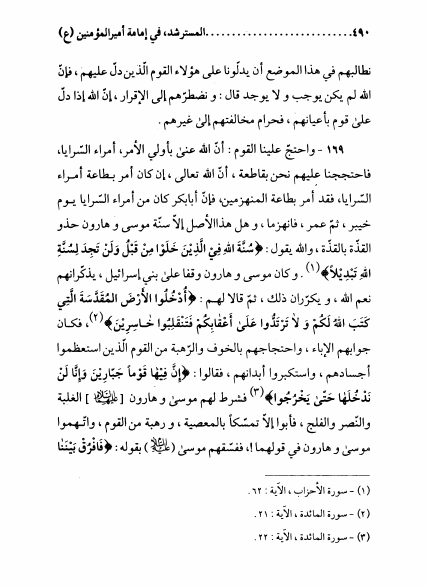 ٤٩٠ ............................ المسترشد، في إمامة أميرالمؤمنين (ع)
نطالبهم في هذا الموضع أن يدلّونا على هؤلاء القوم الّذين دلّ عليهم، فإنّ
الله لم يكن يوجب و لا يوجد قال : و نضطرّهم إلى الإقرار، إنّ الله إذا دلّ
علىٰ قوم بأعيانهم، فحرام مخالفتهم إلىٰ غيرهم.
١٦٩ - واحتجّ علينا القوم : أنّ الله عنىٰ بأولي الأمر، أمراء السّرايا،
فاحتججنا عليهم نحن بقاطعة، أنّ الله تعالى، إن كان أمر بـطاعة أمـراء
السّرايا، فقد أمر بطاعة المنهزمين، فإنّ أبابكر كان من أمراء السّرايا يـوم
خيبر، ثمّ عمر، فانهزما، و هل هذاالأصل إلاّ سنّة موسى و هارون حذو
القذّة بالقذّة، والله يقول: ﴿سُنَّةَ اللهِ فِيْ الَّذِينَ خَلَوْا مِنْ قَبْلُ وَلَنْ تَجِدَ لِسُنَّةِ
اللهِ تَبْدِيْلاً﴾(١). و كان موسى و هارون وقفا على بني إسرائيل، يذكّرانهم
نعم الله، و يكرّران ذلك، ثمّ قالا لهـم : ﴿أُدْخُلُوا الأَرْضَ المُقَدَّسَةَ الَّتِي
كَتَبَ اللهُ لَكُمْ وَ لاَ تَرْتَدُّوا عَلَىٰ أَعْقَابِكُمْ فَتَنْقَلِبُوا خَـاسِرِيْنَ﴾(٢)، فكـان
جوابهم الإباء، واحتجاجهم بالخوف والرّهبة من القوم الّذين استعظموا
أجسادهم، واستكبروا أبدانهم، فقالوا: ﴿إِنَّ فِيْهَا قَوْماً جَبَّارِيْنَ وَإِنَّا لَنْ
نَدْخُلَهَا حَتَّىٰ يَخْرُجُوا﴾(٣) فشرط لهم موسىٰ و هارون [عليهما السلام] الغلبة
والنّصر والفلج، فأبوا إلاّ تمسّكاً بالمعصية، و رهبة من القوم، واتّـهموا
موسىٰ و هارون في قولهما !، ففسّقهم موسىٰ (عليه السلام) بقوله: ﴿فَافْرُقْ بَيْنَنَا
(١) - سورة الأحزاب، الآية : ٦٢.
(٢) - سورة المائدة، الآية : ٢١.
(٣) - سورة المائدة، الآية : ٢٢.